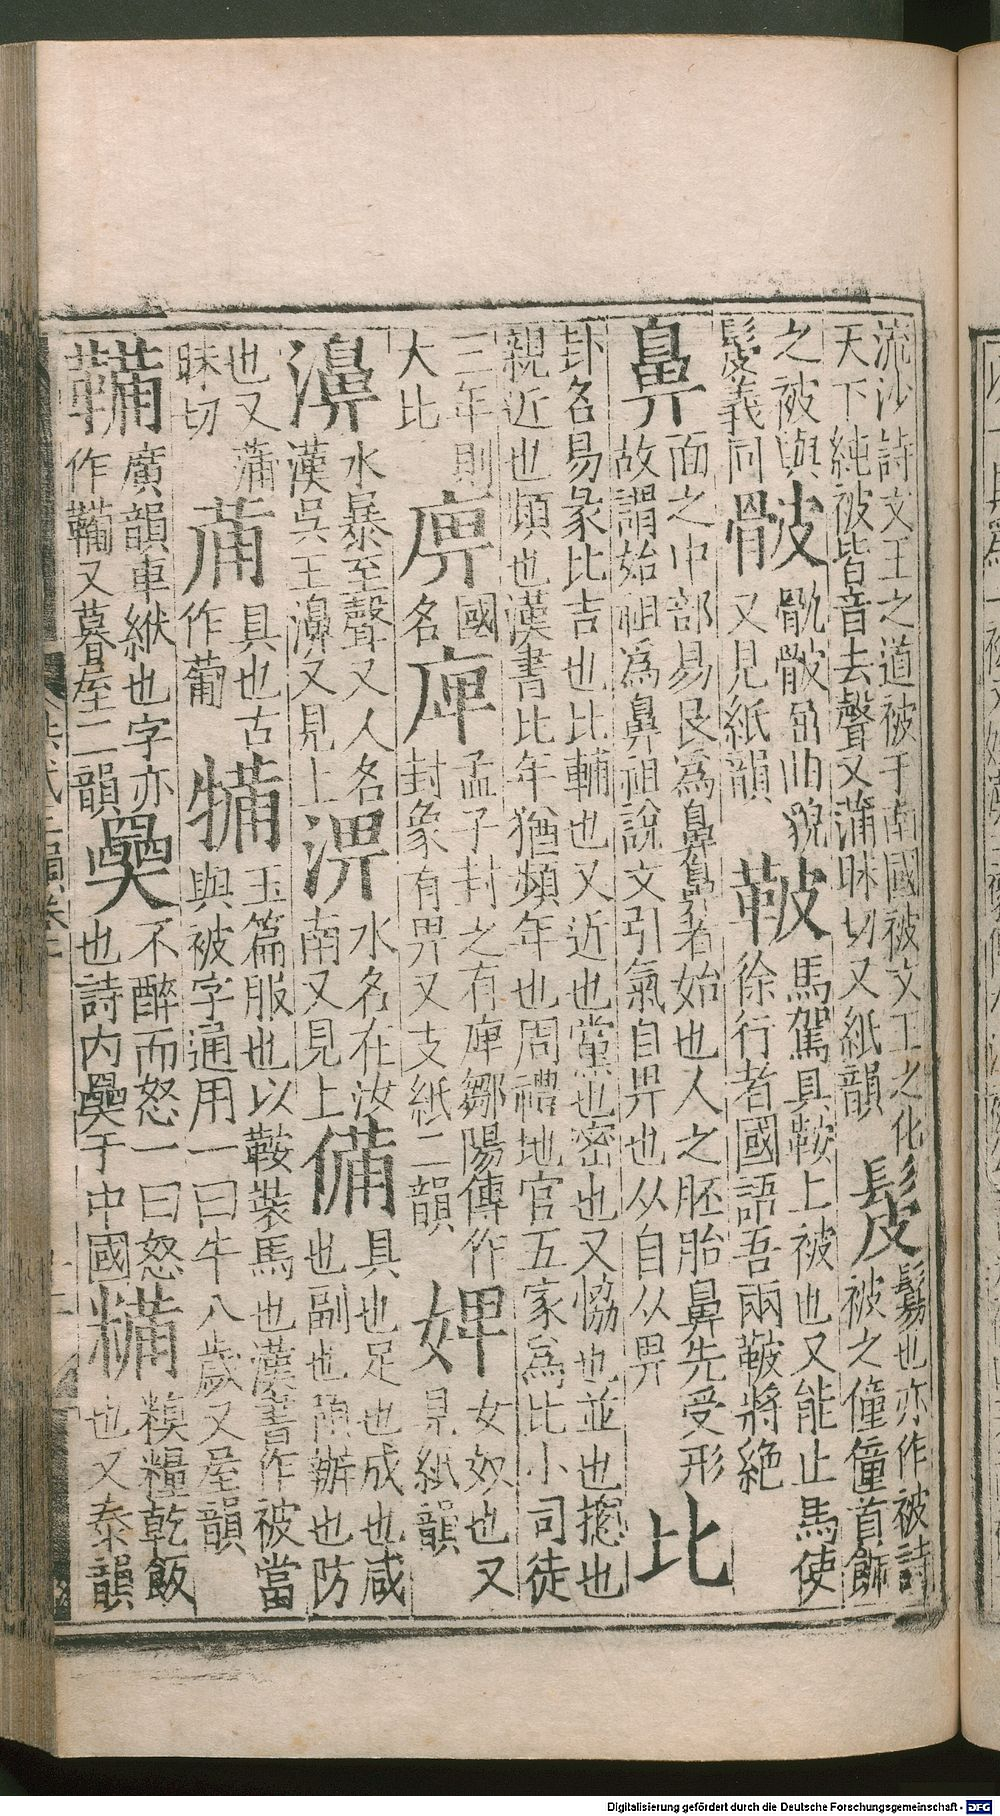 流沙詩文王之道被于南國被文王之化
天下純被皆音去聲又蒲昧切又紙韻
髲
鬄也亦作被詩
被之僮僮首飾
之被與
髲義同
骳
骫骳屈曲貌
又見紙韻
鞁
馬駕具鞍上被也又能止馬使
徐行者國語吾兩鞁將絕
鼻
面之中部易艮爲鼻鼻者始也人之胚胎鼻先受形
故謂始祖爲鼻祖說文引氣自畀也从自从畀
比
卦名易彖比吉也比輔也又近也黨也密也又恊也並也揔也
親近也頻也漢書比年猶頻年也周禮地官五家爲比小司徒
三年則
大比
國
名
庳
孟子封之有庳鄒陽傳作
封象有畀又支紙二韻
婢
女奴也又
見紙韻
濞
水暴至聲又人名
漢吳王濞又見上
淠
水名在汝
南又見上
備
具也足也成也咸
也副也預辦也防
也又蒲
昧切
具也古
作葡
犕
玉篇服也以鞍裝馬也漢書作被當
與被字通用一曰牛八歲又屋韻
鞴
廣韻車紱也字亦
作鞴又暮屋二韻
奰
不醉而怒一曰怒
也詩内奰于中國
糒
糗糧乾飯
也又泰韻
Digitalisierung gefördert durch die Deutsche Forschungsgemeinschaft - DFG